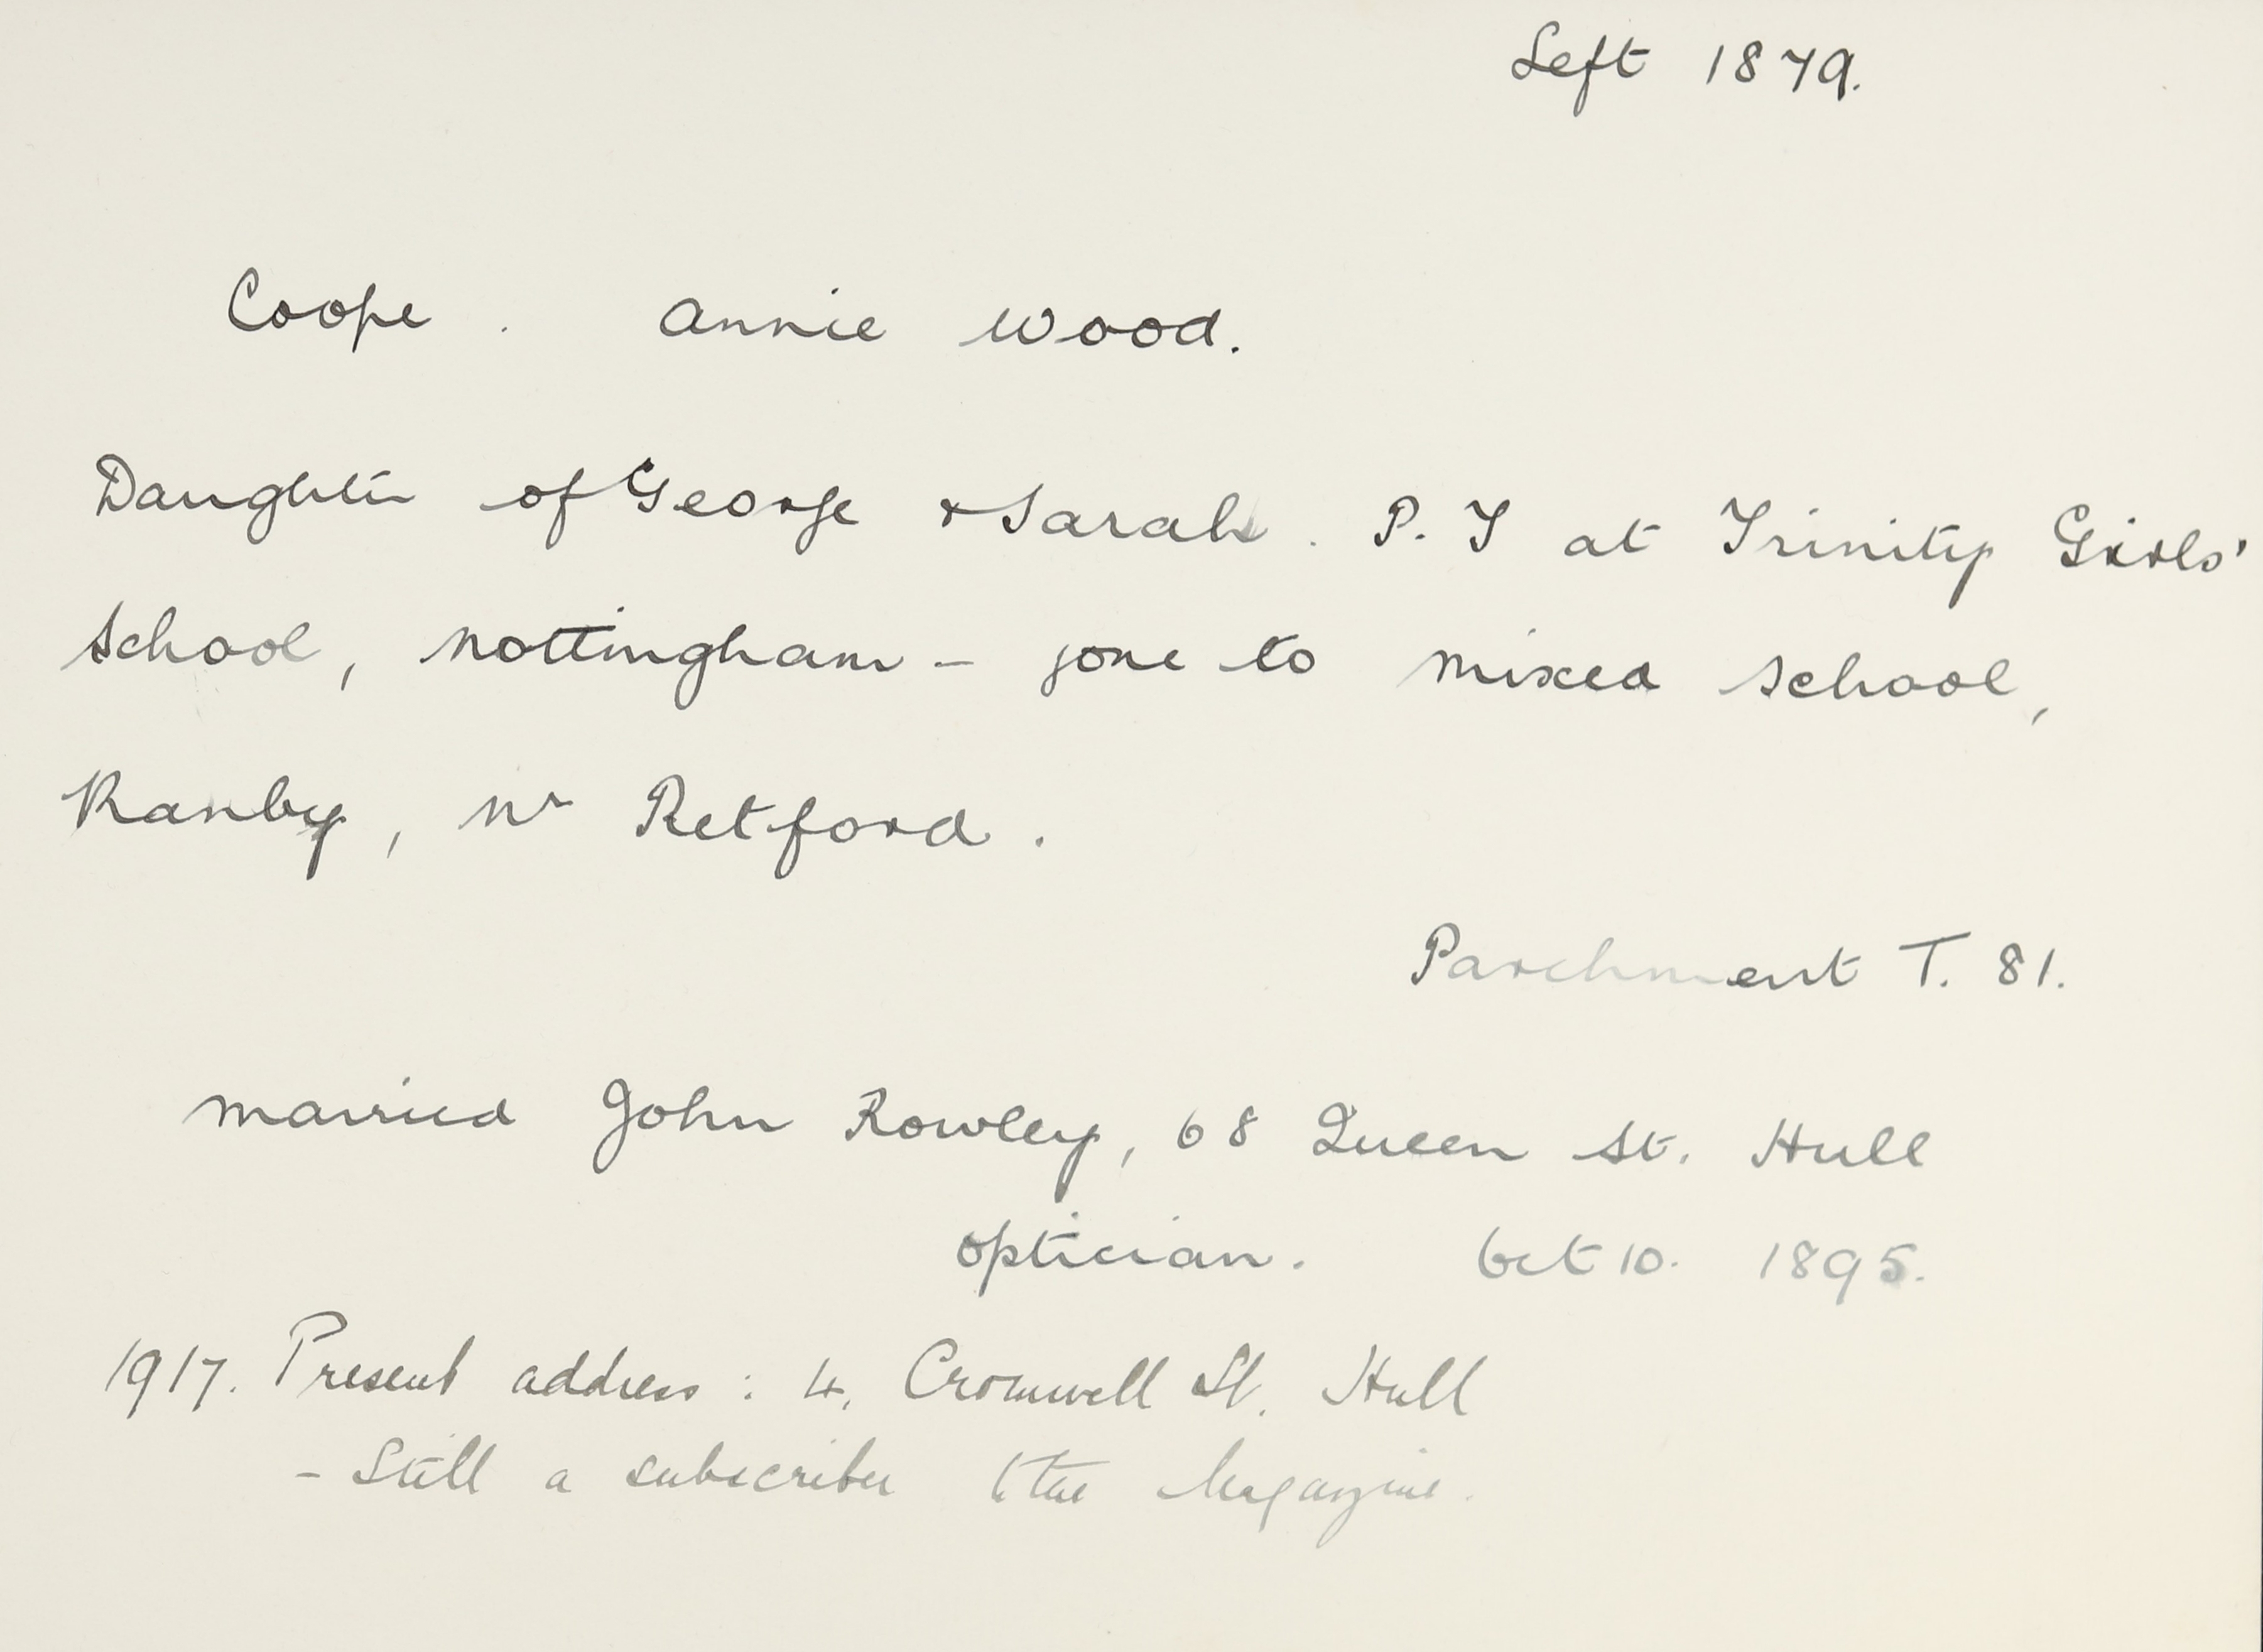 Left 1879.
Coope. Annie Wood.
Daughter of George & Sarah. P.T at Trinity Girls'
School, Nottingham - gone to mixed school,
Ranby, Nr Retford.
Parchment T. 81.
married John Rowley, 68 Queen St. Hull
optician. Oct 10. 1895.
1917. Present address: 4, Cromwell St. Hull
- Still a subscriber to the Magazine.